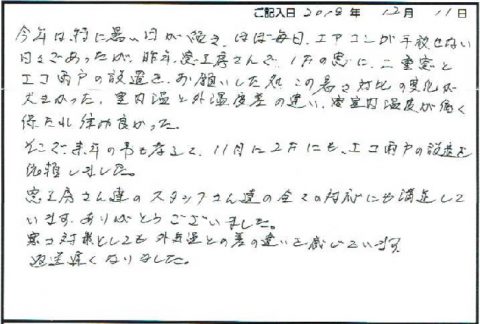 ご記入日 2018年 12月 11日
今年は特に暑い日が続き、ほぼ毎日、エアコンが手放せない
日々であったが、昨年、窓工房さんで、1Fの窓に、二重窓と
エコ雨戸の設置を、お願いした処、この暑さ対比の変化が
大きかった。室内温と外温度差の違い、室内温度が低く
保たれ住み良かった。
そこで、来年の事も考えて、11月に2Fにも、エコ雨戸の設置を
依頼しました。
窓工房さん達のスタッフさん達の全ての対応にも満足して
います。ありがとうございました。
寒さ対策としても外気温との差の違いを感じています
返送遅くなりました。